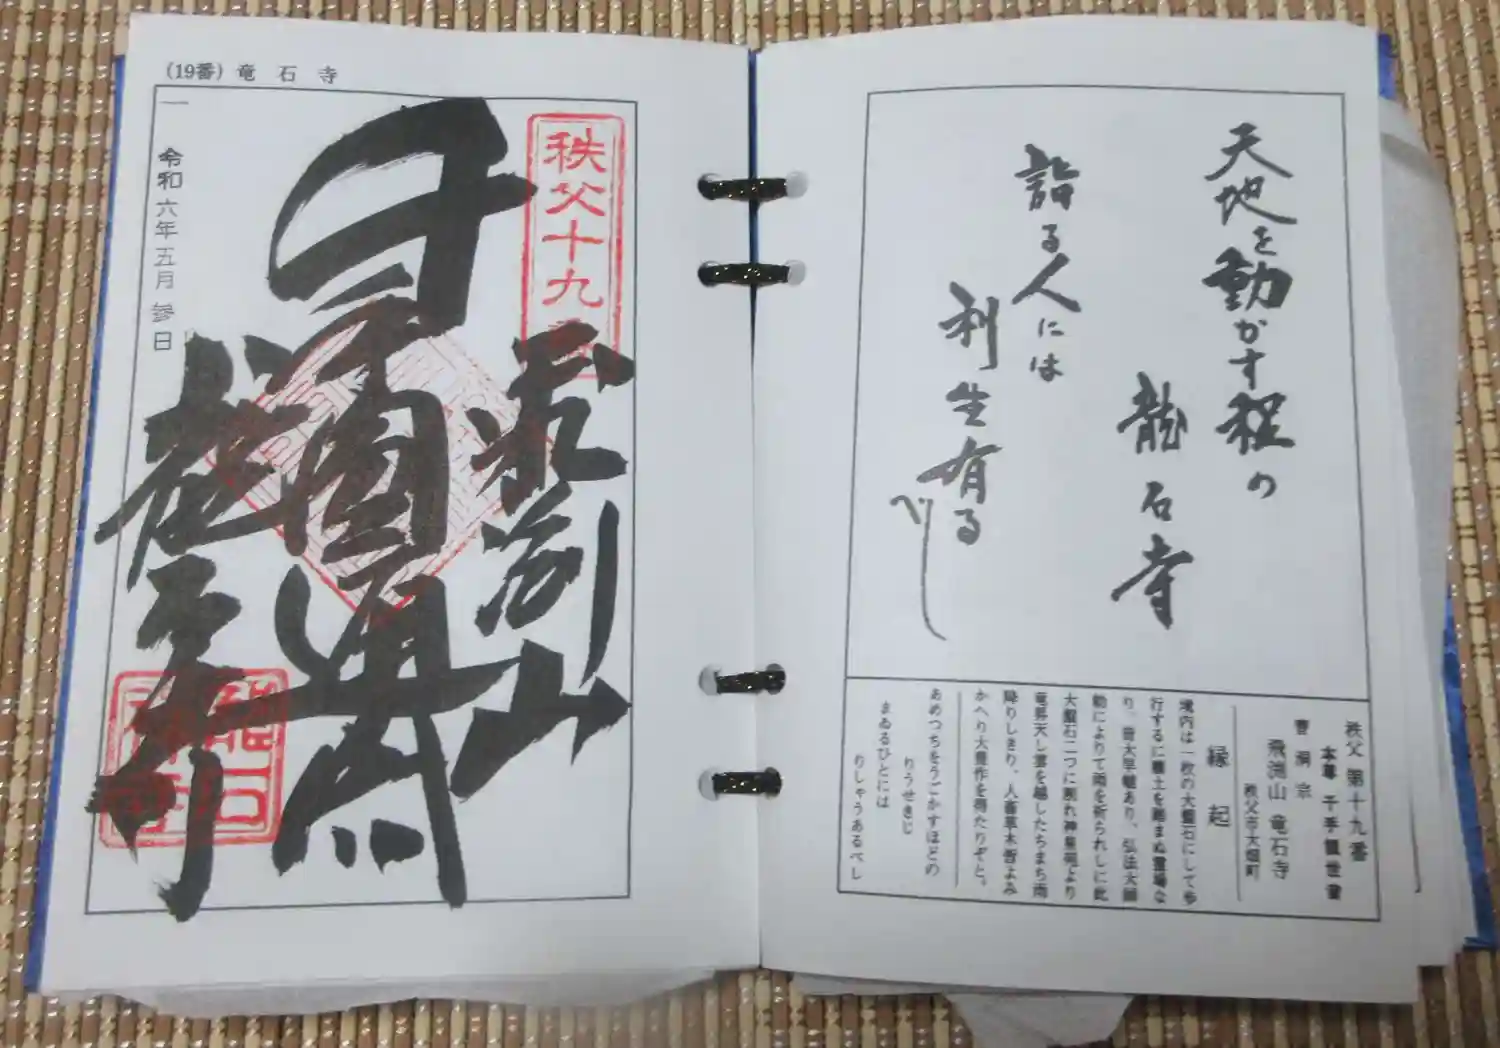 天地を動かす程の
龍石寺
詣る人には
利生有る
べし
秩父 第十九番
本尊 千手観世音
曹洞宗
飛渕山 竜石寺
秩父市大畑町
縁起
境内は一枚の大盤石にして歩
行するに壌土を踏まぬ霊場な
り、昔大旱魃あり、弘法大師
動によりて雨を祈られしに此
大盤石二つに割れ神泉苑より
竜昇天し雲を起したちまち雨
降りしきり、人畜草木皆よみ
かへり大豊作を得たりぞと。
あめつちをうごかすほどの
りうせきじ
まゐるひとには
りしゃうあるべし
(19番) 竜石寺
秩父十九番
飛渕山
千圓通閣
龍石寺
令和六年五月参日